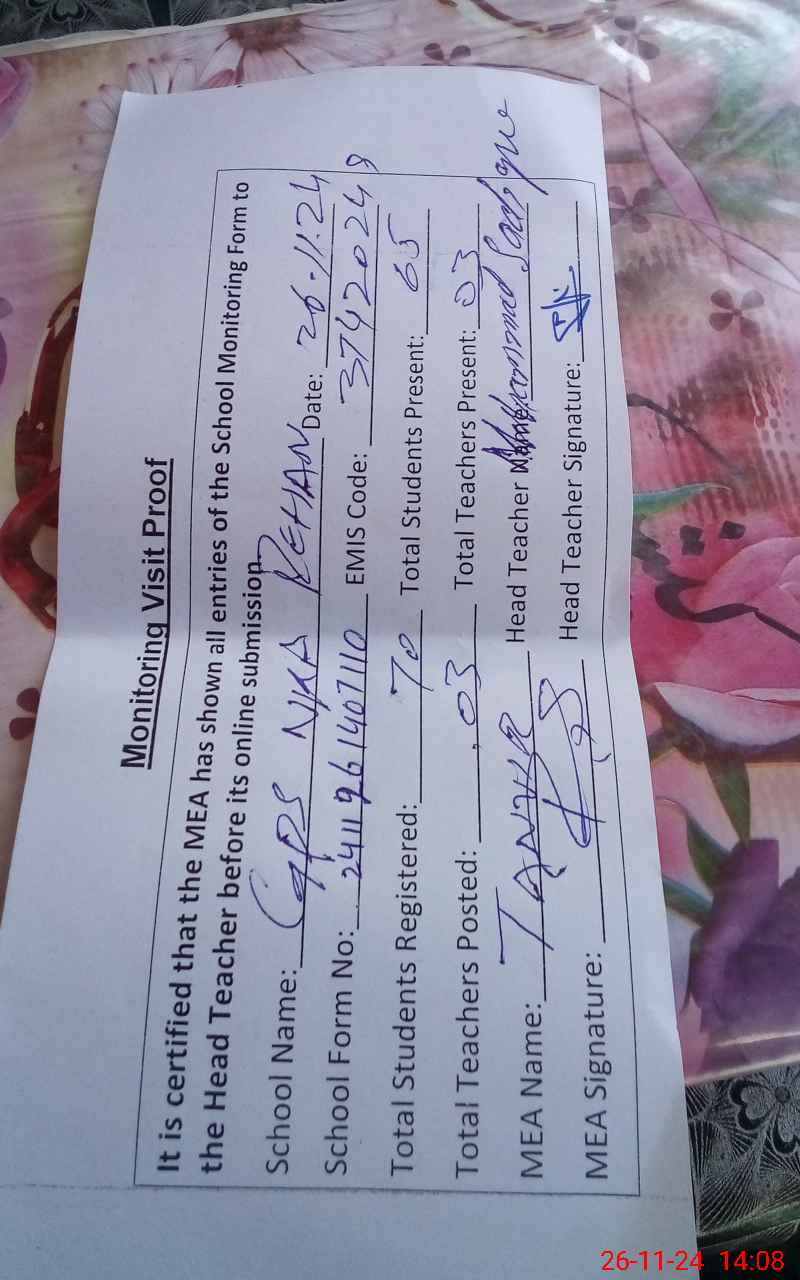 Monitoring Visit Proof
It is certified that the MEA has shown all entries of the School Monitoring Form to
the Head Teacher before its online submission.
School Name: GPS NKA REHAN Date: 26.11.24
School Form No: 2411961407110 EMIS Code: 37420248
Total Students Registered: 70 Total Students Present: 65
Total Teachers Posted: 03 Total Teachers Present: 03
MEA Name: Head Teacher Name: Muhammad
MEA Signature: Head Teacher Signature:
26-11-24 14:08